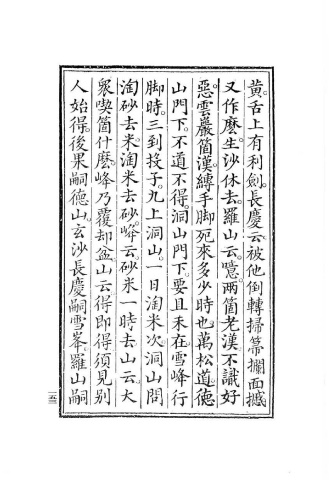 黃。舌上有利劍。長慶云。被他倒轉掃箒攔面摵
又作麽生。沙休去。羅山云。噫。兩箇老漢不識好
惡。雲巖箇漢。縛手脚。死來多少時也。萬松道。德
山門下。不道不得。洞山門下。要且未在。雪峰行
脚時。三到投子。九上洞山。一日淘米次。洞山問
淘砂去米。淘米去砂。峰云。砂米一時去。山云。大
衆喫箇什麽。峰乃覆却盆。山云。得即得。須見別
人始得。後果嗣德山。玄沙長慶嗣雪峯。羅山嗣
一五